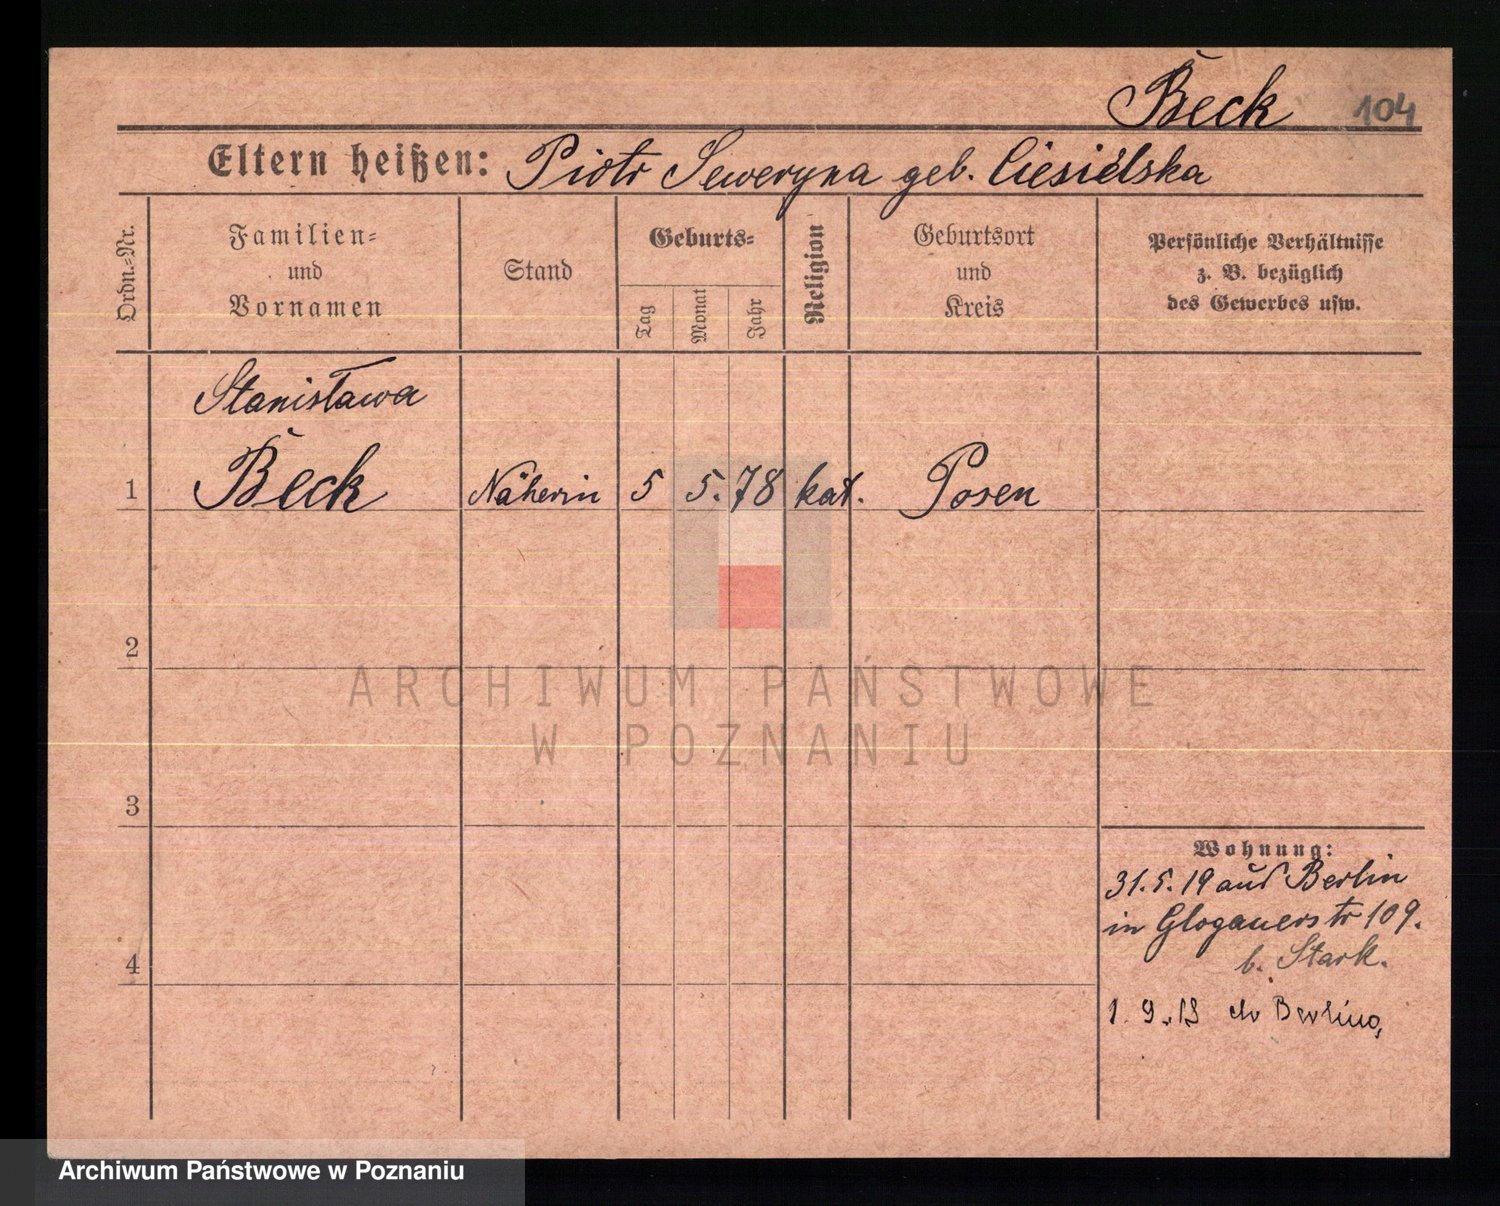 Beck 104
Eltern heißen: Piotr Seweryna geb. Ciesielska
Ordn.-Nr.
Familien-
und
Vornamen
Stand
Geburts-
Tag
Monat
Jahr
Religion
Geburtsort
und
Kreis
Persönliche Verhältnisse
z. B. bezüglich
des Gewerbes usw.
Stanisława
1 Beck Näherin 5 5. 78 kat. Posen
2
3
4
Wohnung:
31.5.19 aus Berlin
in Glogauerstr 109.
b. Stark.
1. 9. do Berlina,
ARCHIWUM PAŃSTWOWE
W POZNANIU
Archiwum Państwowe w Poznaniu